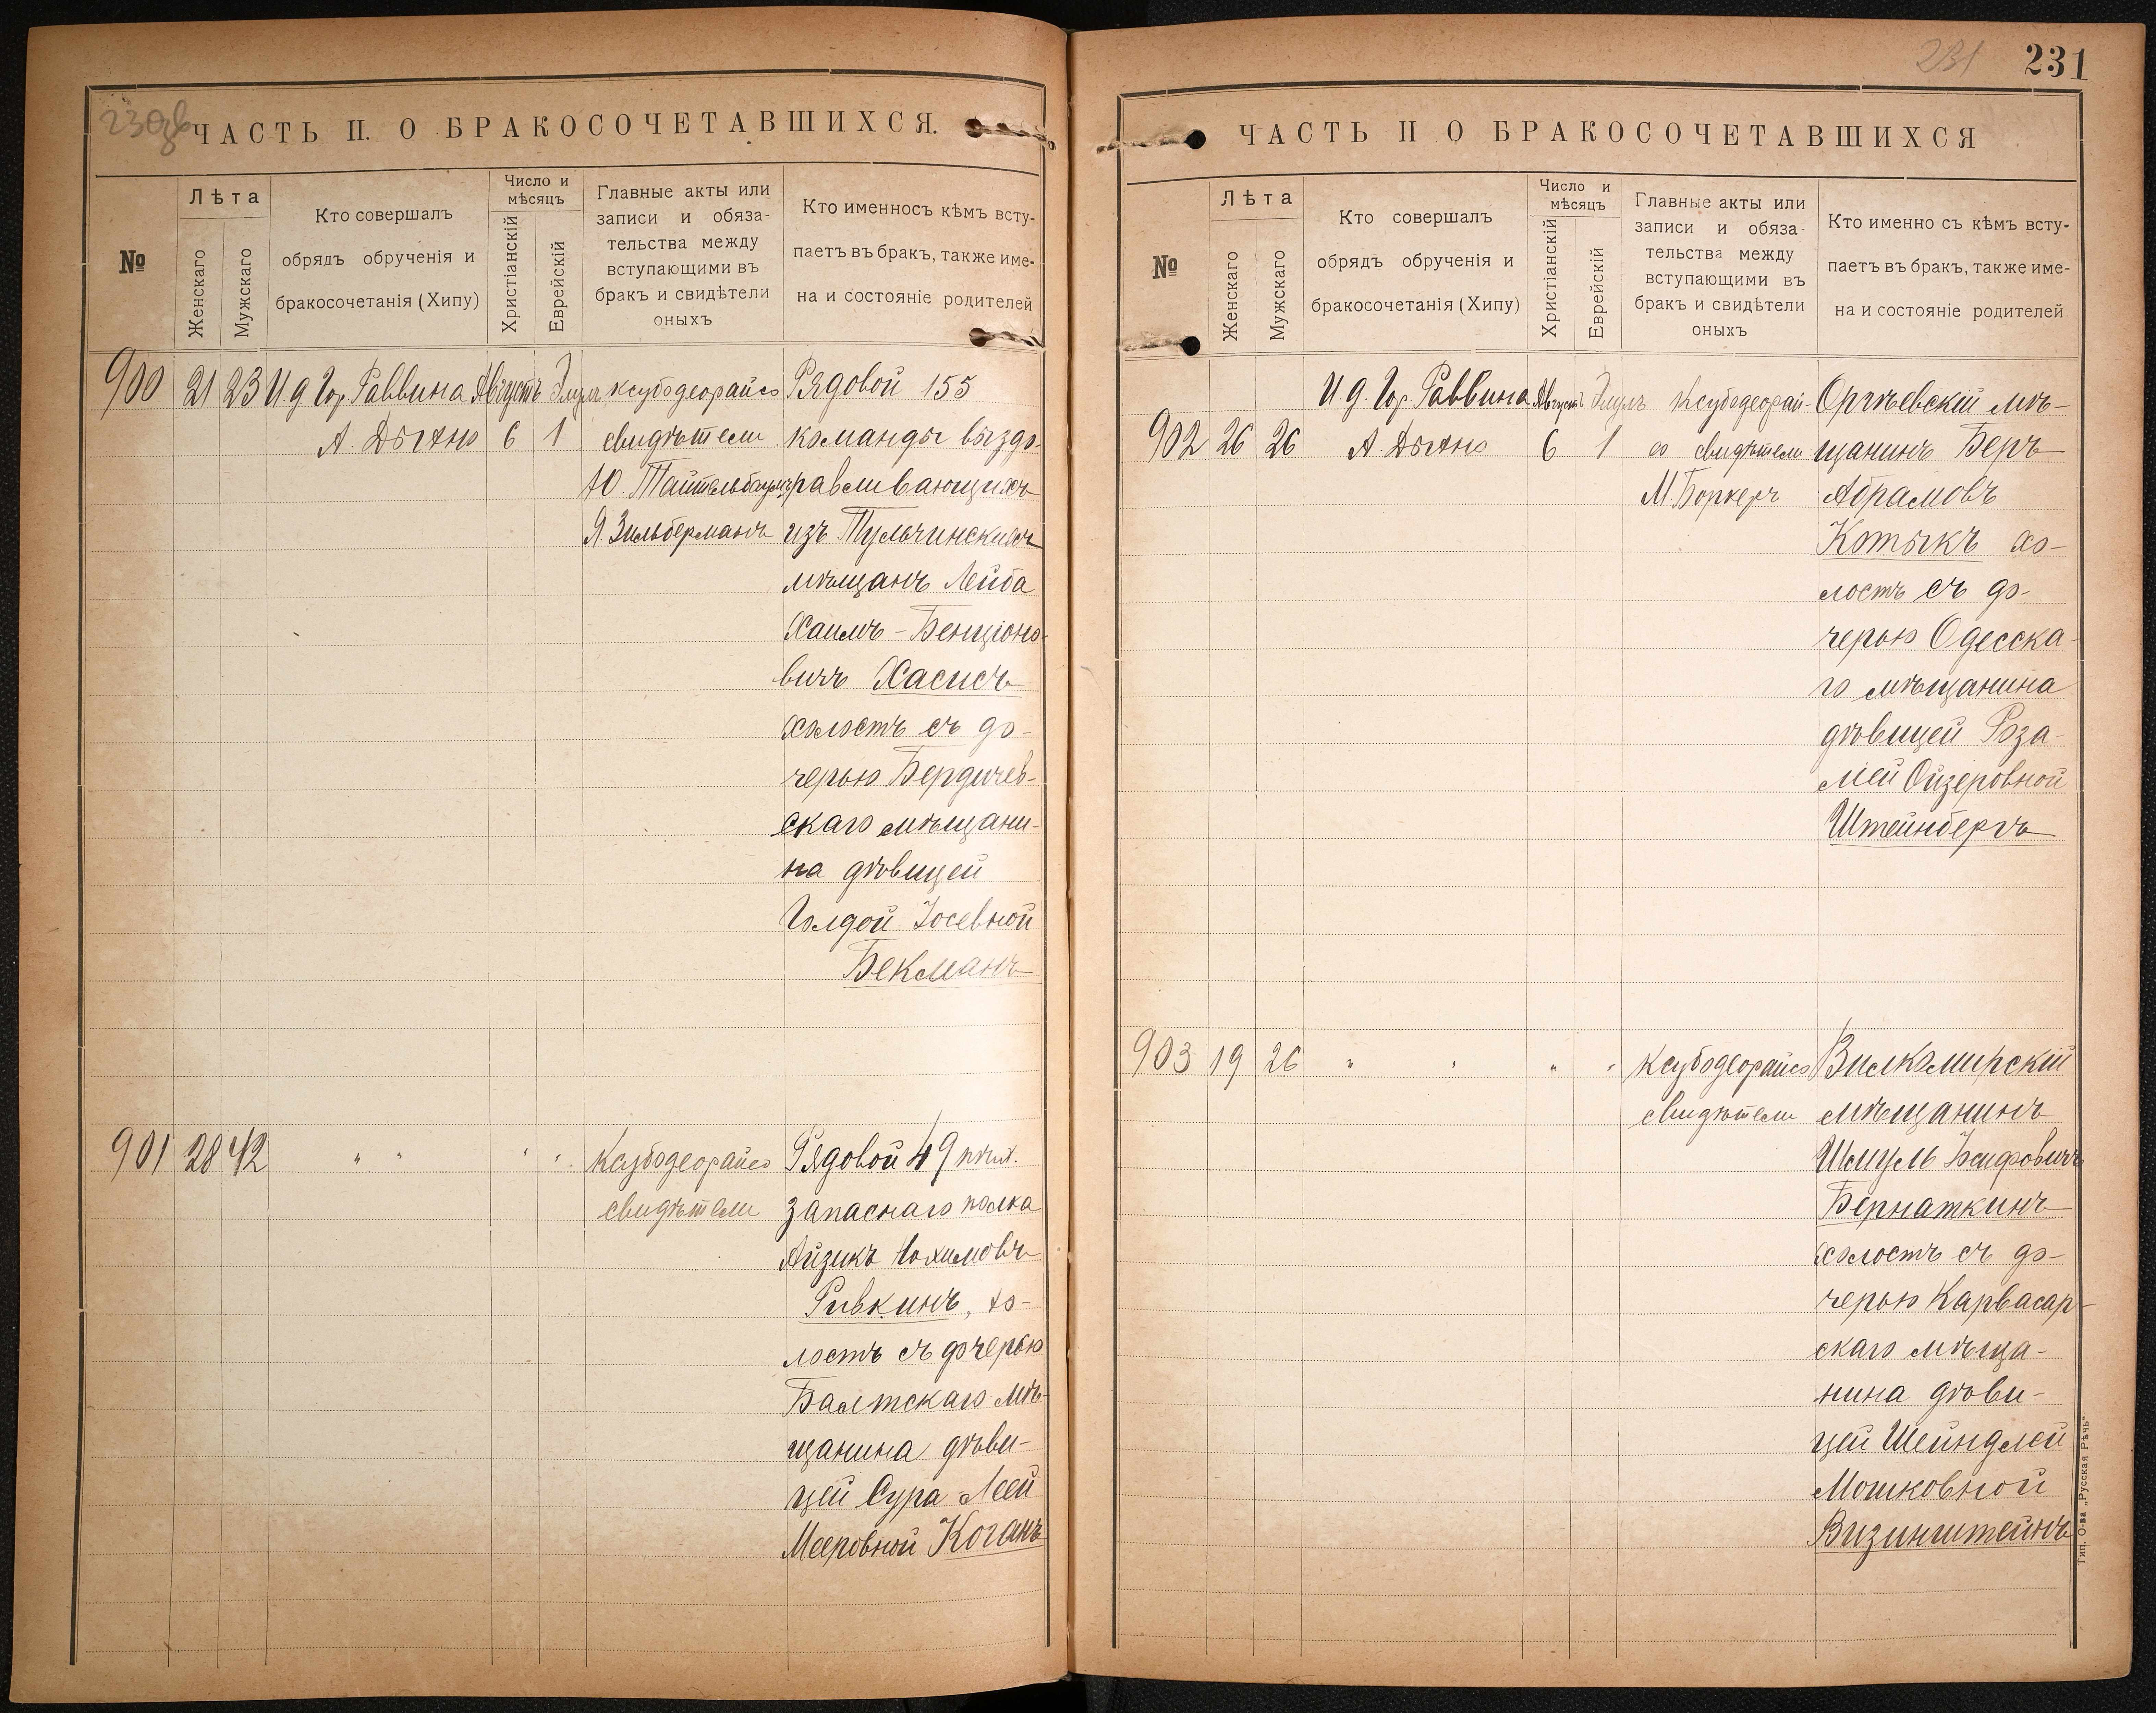 230зв
ЧАСТЬ II. О БРАКОСОЧЕТАВШИХСЯ.
№
Лѣта
Женскаго
Мужскаго
Кто совершалъ
обрядъ обрученія и
бракосочетанія (Хипу)
Число и
мѣсяцъ
Христіанскій
Еврейскій
Главные акты или
записи и обяза-
тельства между
вступающими въ
бракъ и свидѣтели
оныхъ
Кто именносъ кѣмъ всту-
паетъ въ бракъ, также име-
на и состояніе родителей
900 21 23 И.д Гор. Раввина Августъ Элулъ ксубодеорайсо Рядовой 155
А. Дыхно 6 1 свидѣтели команды выздо-
Ю. Тайтельбаумъ равливающихъ
Я. Зильберманъ изъ Тульчинскихъ
мѣщанъ Лейба
Хаимъ-Бенціоно-
вичъ Хасисъ
холостъ съ до-
черью Бердичев-
скаго мѣщани-
на дѣвицей
Голдой Іосевной
Бекманъ
901 28 42 " " " " Ксубодеорайсо Рядовой 49 пѣх.
свидѣтели запаснаго полка
Айзикъ
Ривкинъ, хо-
лостъ съ дочерью
Балтскаго мѣ-
щанина дѣви-
цей Сура Леей
Мееровной Коганъ
231
231
ЧАСТЬ II О БРАКОСОЧЕТАВШИХСЯ
№
Лѣта
Женскаго
Мужскаго
Кто совершалъ
обрядъ обрученія и
бракосочетанія (Хипу)
Число и
мѣсяцъ
Христіанскій
Еврейскій
Главные акты или
записи и обяза-
тельства между
вступающими въ
бракъ и свидѣтели
оныхъ
Кто именно съ кѣмъ всту-
паетъ въ бракъ, также име-
на и состояніе родителей
И д. Гор. Раввина Августъ Элулъ Ксубодеорай- Оргѣевскій мѣ-
902 26 26 А. Дыхно 6 1 со свидѣтели щанинъ Беръ
М. Боркеръ Абрамовъ
Котыкъ хо-
лостъ съ до-
черью Одесска-
го мѣщанина
дѣвицей Роза-
ліей Ойзеровной
Штейнбергъ
903 19 26 " " " " Ксубодеорайсо Вилкомирскій
свидѣтели мѣщанинъ
Шмуль
Бернаткинъ
холостъ съ до-
черью Карвасар-
скаго мѣща-
нина дѣви-
цей Шейндлей
Мошковной
Визинштейнъ
Тип. О-ва „Русская Рѣчь“